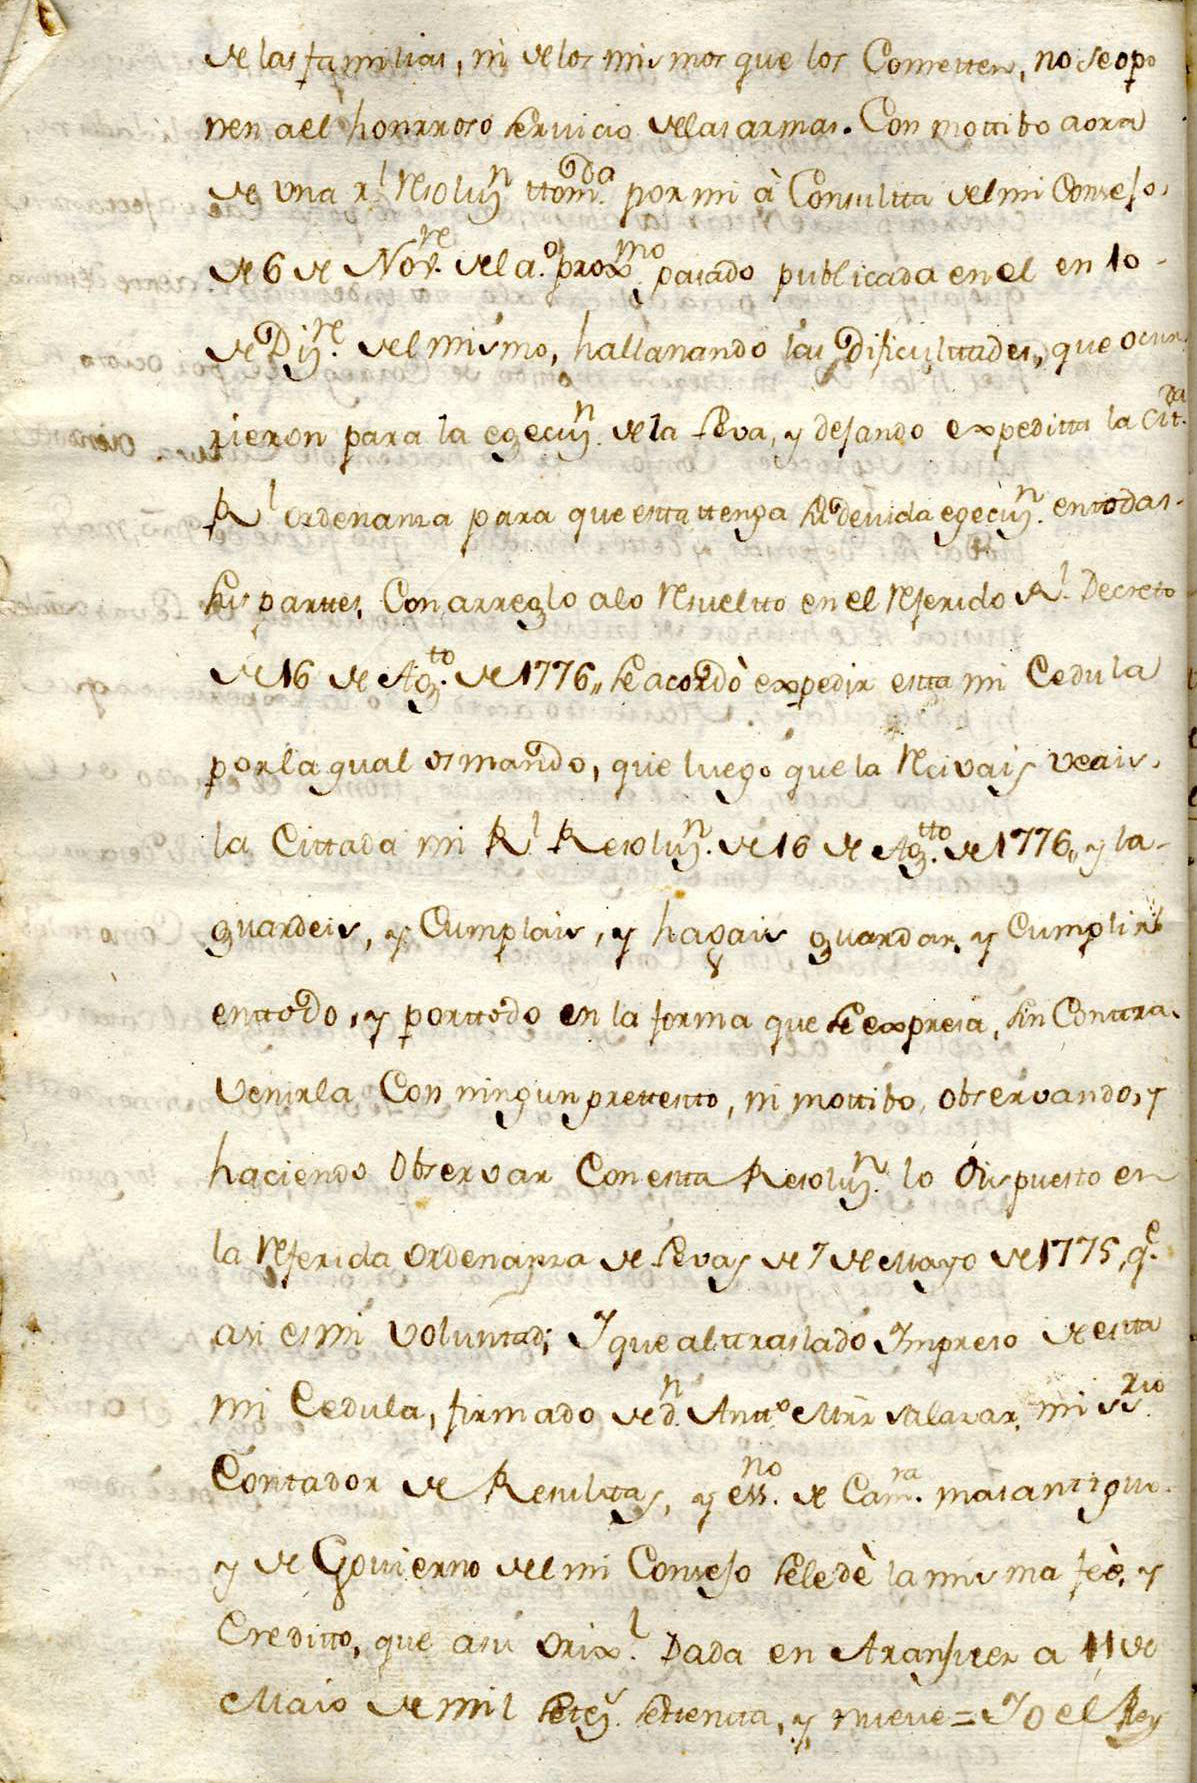 de las familias, ni de los mismos que los Cometten, no se opo
nen a el honrroso servicio de las armas. Con mottibo aora
de una rl. Resoluzn. ttomda. por mi à Consultta del mi Consejo,
de 6 de Novre. del a.o proxmo. pasado publicada en el en 10-
de Dizre. del mismo, hallanando las dificulttades, que ocur
rieron para la egecuzn. de la Leva, y dejando expeditta la Citda.
Rl. ordenanza para que esta ttenga su devida egecuzn. en todas-
sus parttes, Con arreglo a lo Resueltto en el Referido Rl. Decreto
de 16 de Agtto. de 1776,, se acordò expedir esta mi Cedula
por la qual os mando, que luego que la Recivais veais,
la Cittada mi Rl. Resoluzn. de 16 de Agtto. de 1776,, y la-
guardeis, y Cumplais, y hagais guardar, y Cumplir
en ttodo, y por ttodo en la forma que se expresa, sin Conttra-
venirla Con ningun prettestto, ni mottibo, observando, y
haciendo Observar Con esta Resoluzn. lo dispuesto en
la Referida Ordenanza de Levas de 7 de Mayo de 1775, qe.
asi es mi voluntad; Y que al ttraslado Ympreso de esta
mi Cedula, firmado de dn. Antt.o Mrñz Salazar, mi ssrio.
Contador de Resulttas, y essno. de Camra. mas antiguo-
y de Govierno del mi Consejo se le dè la misma feè, y
Creditto, que a su Orixl. Dada en Aranjuez a 11 de
Maio de mil settezs. settentta, y nueve = Yo el Rey